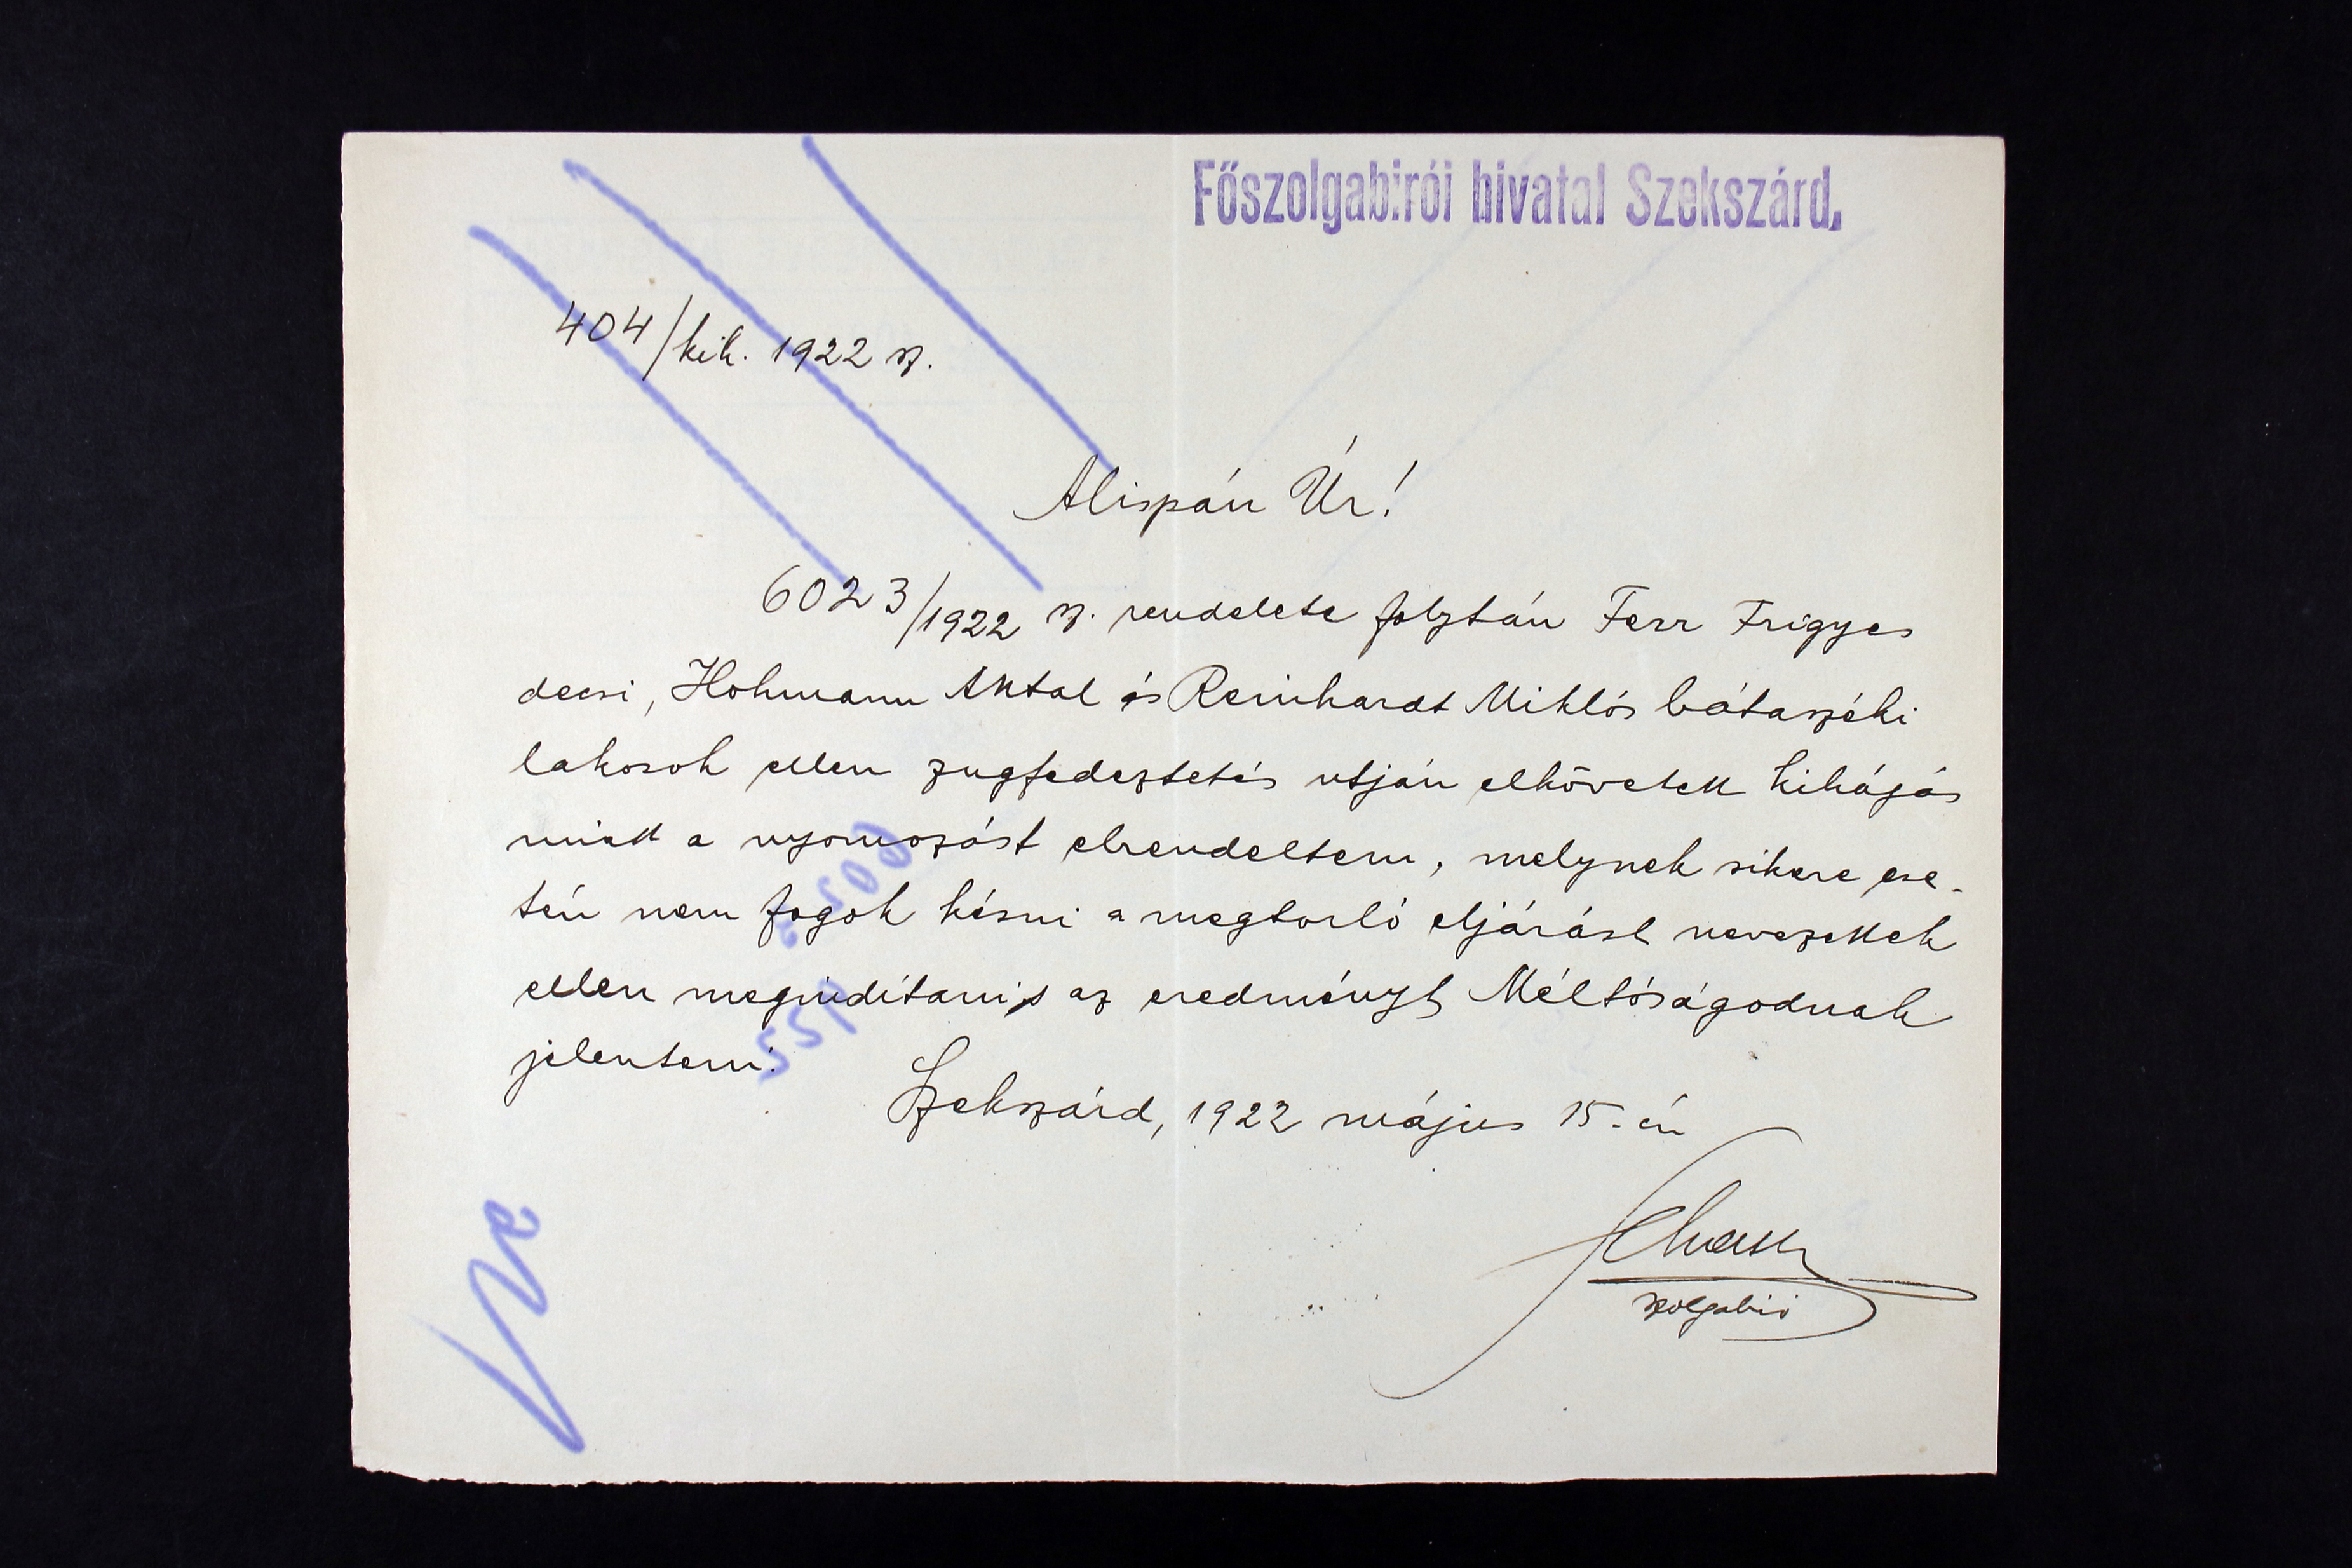 Főszolgabirói hivatal Szekszárd.
404/kih. 1922 sz.
Alispán Úr!
6023/1922 sz. rendelete folytán Ferr Frigyes
decsi, Hohmann Antal és Reinhardt Miklós bátaszéki
lakosok ellen zugfedeztetés utján elkövetett kihágás
miatt a nyomozást elrendeltem, melynek sikere ese-
tén nem fogok késni a megtorló eljárást nevezettek
ellen megindítani s az eredményt Méltóságodnak
jelenteni.
Szekszárd, 1922 május 15-én
szolgabiró